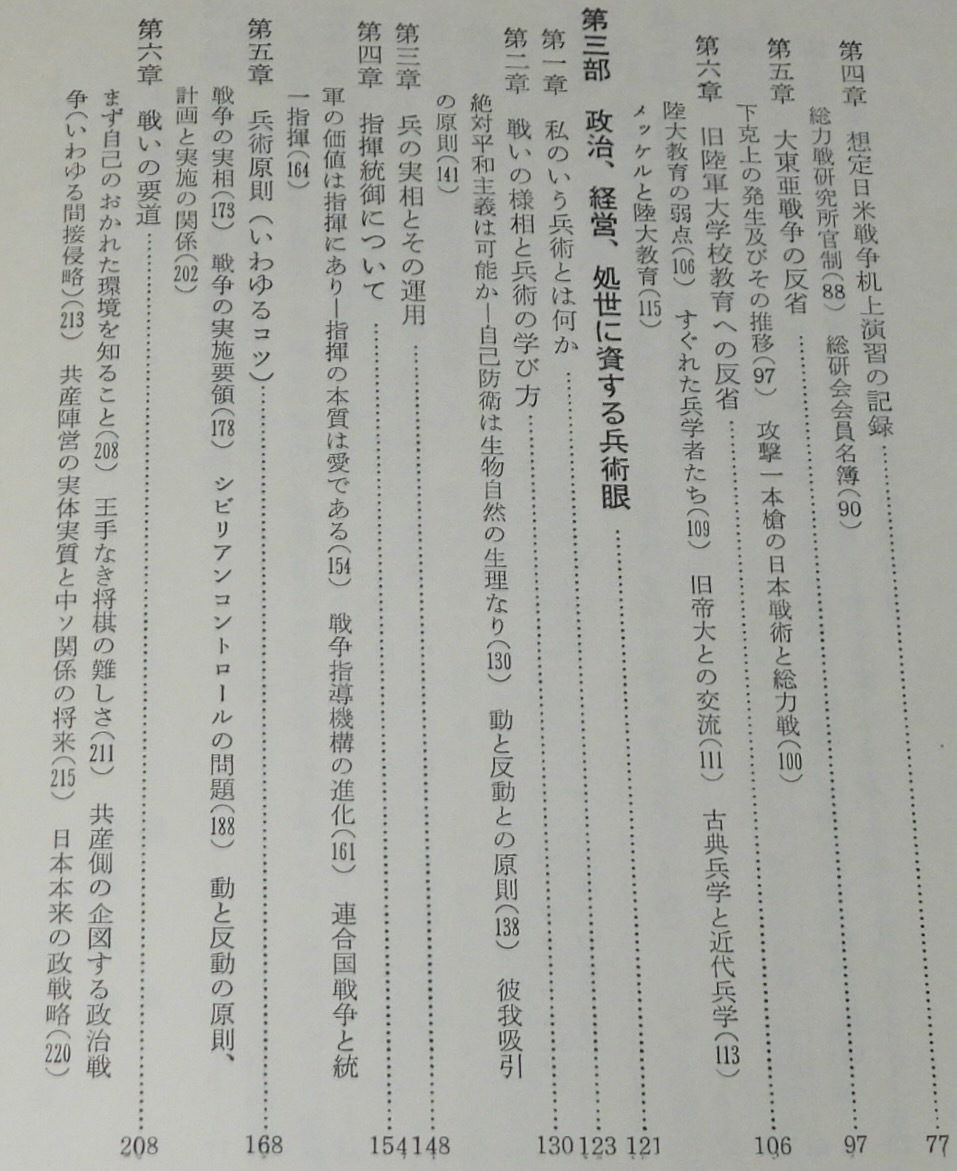 第四章　想定日米戦争机上演習の記録……77
総力戦研究所官制(88)　総研会会員名簿(90)
第五章　大東亜戦争の反省……97
下克上の発生及びその推移(97)　攻撃一本槍の日本戦術と総力戦(100)
第六章　旧陸軍大学校教育への反省……106
陸大教育の弱点(106)　すぐれた兵学者たち(109)　旧帝大との交流(111)　古典兵学と近代兵学(113)
メッケルと陸大教育(115)
第三部　政治、経営、処世に資する兵術眼……121
第一章　私のいう兵術とは何か……123
第二章　戦いの様相と兵術の学び方……130
絶対平和主義は可能か―自己防衛は生物自然の生理なり(130)　動と反動との原則(138)　彼我吸引
の原則(141)
第三章　兵の実相とその運用……148
第四章　指揮統御について……154
軍の価値は指揮にあり―指揮の本質は愛である(154)　戦争指導機構の進化(161)　連合国戦争と統
一指揮(164)
第五章　兵術原則(いわゆるコツ)……168
戦争の実相(173)　戦争の実施要領(178)　シビリアンコントロールの問題(188)　動と反動の原則、
計画と実施の関係(202)
第六章　戦いの要道……208
まず自己のおかれた環境を知ること(208)　王手なき将棋の難しさ(211)　共産側の企図する政治戦
争(いわゆる間接侵略)(213)　共産陣営の実体実質と中ソ関係の将来(215)　日本本来の政戦略(220)